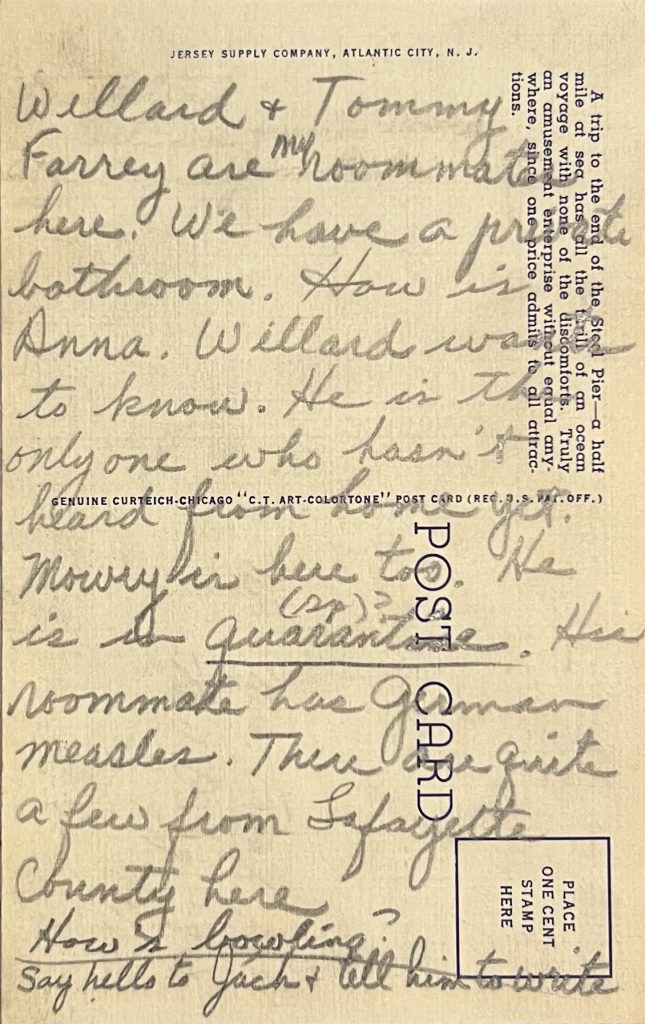 JERSEY SUPPLY COMPANY, ATLANTIC CITY, N. J.
Willard & Tommy
Farrey are my roommates
here. We have a private
bathroom. How is
Anna. Willard wants
to know. He is the
only one who hasn't
heard from home yet.
Mowry is here too. He
(sp)?
is in quarantine. His
roommate has German
measles. There are quite
a few from Lafayette
County here
How's bowling?
Say hello to Jack & tell him to write
A trip to the end of the Steel Pier—a half
mile at sea has all the thrill of an ocean
voyage with none of the discomforts. Truly
an amusement enterprise without equal any-
where, since one price admits to all attrac-
tions.
GENUINE CURTEICH-CHICAGO "C.T. ART-COLORTONE" POST CARD (REG. U.S. PAT. OFF.)
POST CARD
PLACE
ONE CENT
STAMP
HERE